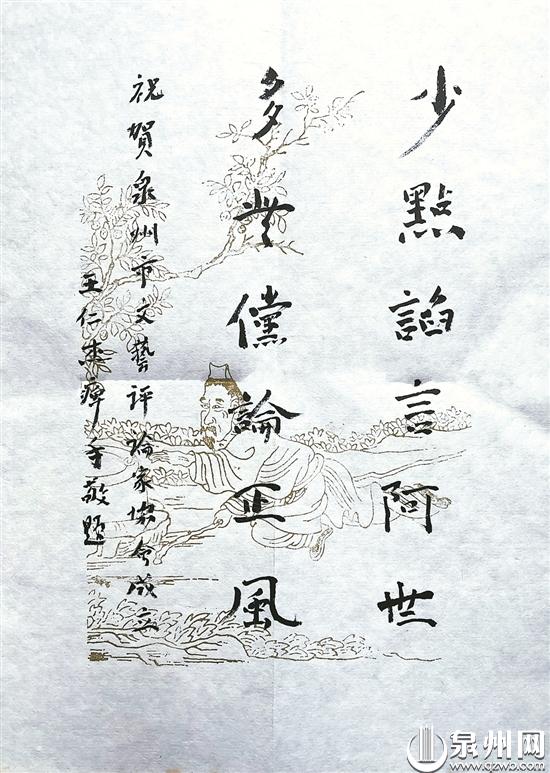 少點諂言阿世
多些儻論正風
祝賀泉州市文藝評論家協会成立
王仁杰痺手敬题
泉州网
www.qzwb.com